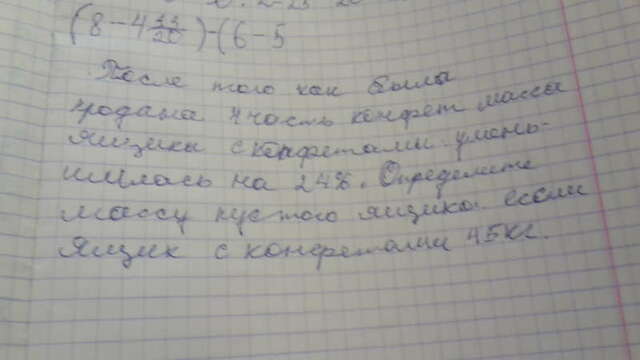 (8-4 13/20)-(6-5
После того как была
продана часть конфет масса
ящика с конфетами умень-
шилась на 24%. Определите
массу пустого ящика если
ящик с конфетами 45кг.